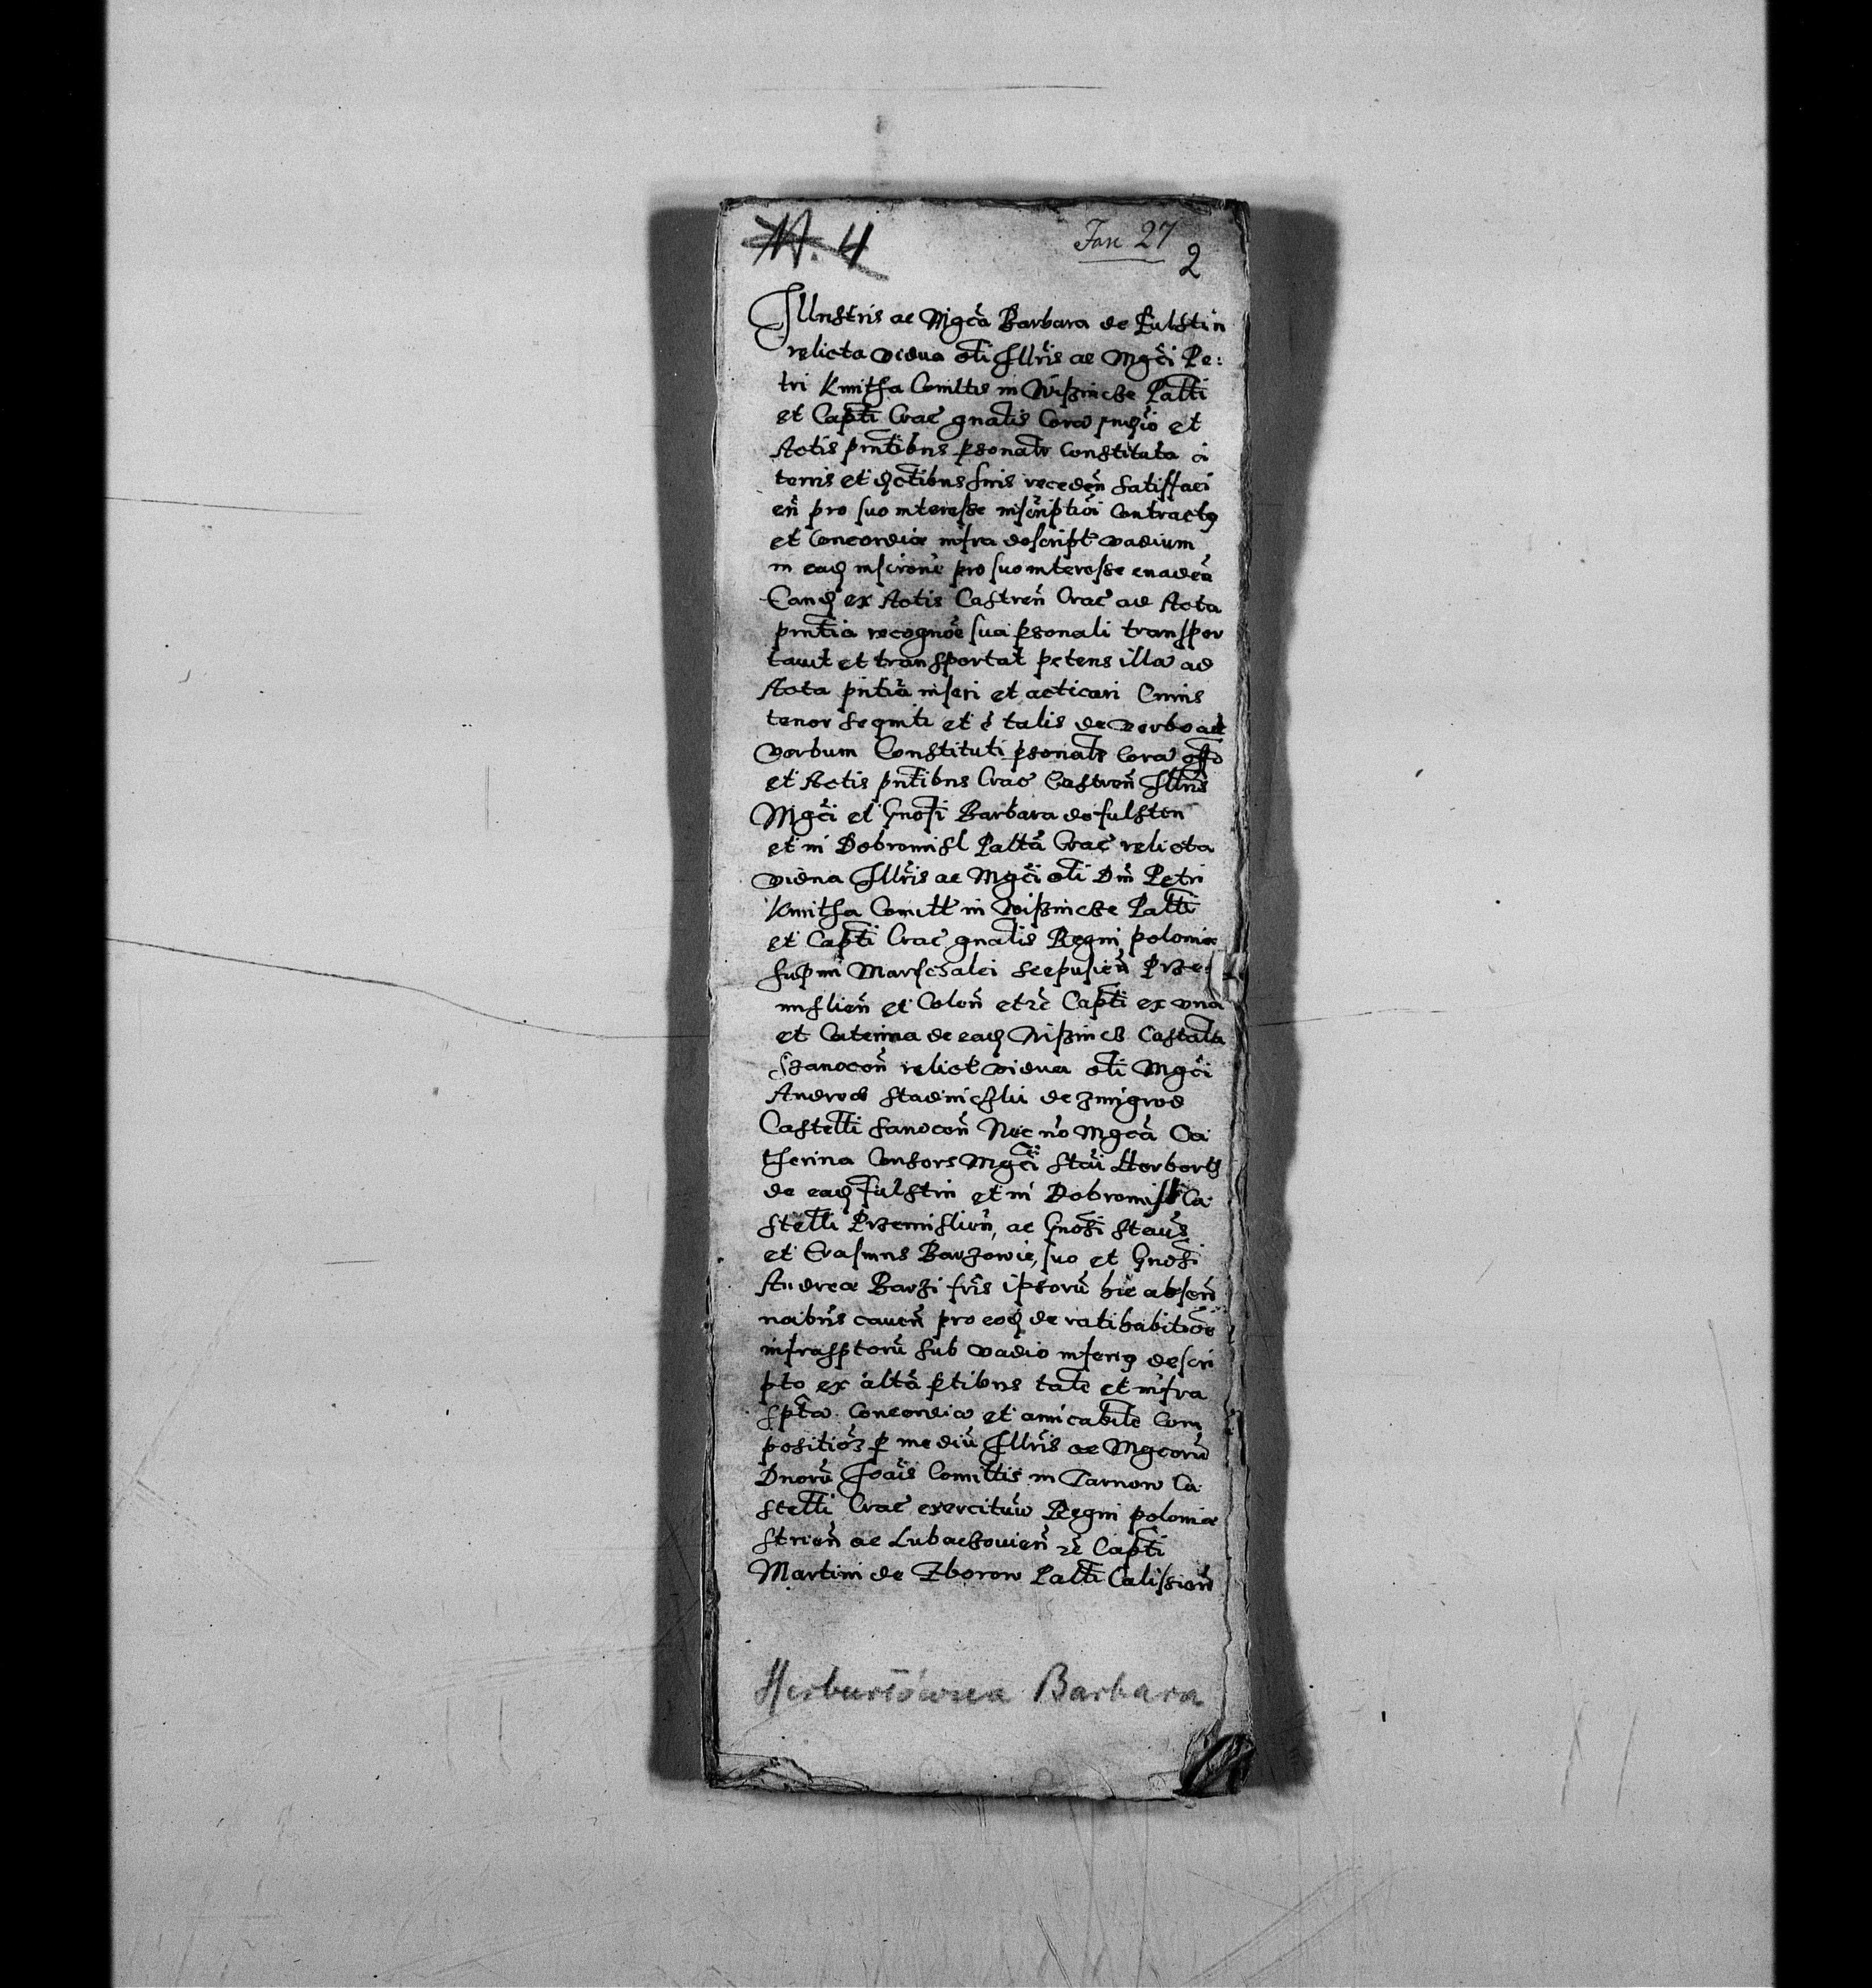 N. 4
Fasc 27
2
Illustris ac Mgca Barbara de Fulstin
relicta vidua oti Illris ac Mgci Pe:
tri Kmitha Comitis in Wißnicze Palti
et Capti Crac gnalis Cora Judio et
Actis pntibus psonalr Constituta a
terris et dictibus suis receden satisfaci
en pro suo interesse inscriptioi Contractus
et Concordiæ infra descript vadium
in ead inscrone pro suo interesse evaden
Eand ex Actis Castren Crac ad Acta
pntia recognoe sua psonali transpor
tavit et transportat petens illa ad
Acta pntia inseri et acticari Cuius
tenor sequit et e talis de verbo ad
verbum Constituti psonalr Cora offo
et Actis pntibus Crac Castren Illris
Mgci et Gnosi Barbara de fulsten
et in Dobromisl Palta Crac relicta
vidua Illris ac Mgci oti Dni Petri
Kmitha Comit in Wißnicze Palti
et Capti Crac gnalis Regni poloniæ
supmi Marschalci scepusien Prze
mislien et Colen etc Capti ex una
et Caterina de ead Wißnicz Castalta
Szanocen relict vidua oti Mgci
Andreæ Stadniczki de zmigrod
Castelli sanocen Nec no Mgca Ca
therina Consors Mgci Stai Herborth
de ead fulstin et in Dobromisl Ca
stelli Przemislien, ac Gnosi Staus
et Erasmus Barzowie, suo et Gnosi
Andreæ Barzi fris ipsoru hic absen
noibus caven pro eod de ratihabitioe
infrasptoru sub vadio inferius descri
pto ex alta ptibus tale et infra
spta Concordia et amicabile Com
positioz p mediu Illris ac Mgcoru
Dnoru Joais Comitis in Tarnow Ca
stelli Crac exercituu Regni poloniæ
strien ac Lubaczovien zc Capti
Martini de Zborow Palti Calissien
Herburtówna Barbara